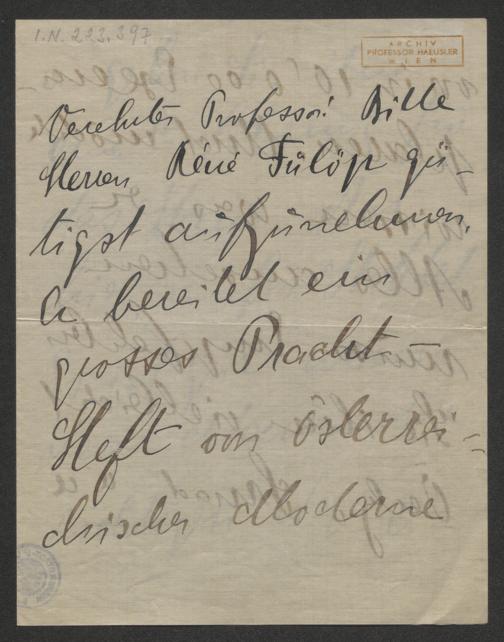 I.N. 223.397
ARCHIV
PROFESSOR HAEUSLER
WIEN
Verehrter Professor! Bitte
Herrn Réné Fülöp gü-
tigst aufzunehmen.
Er bereitet ein
grosses Pracht-
Heft von österrei-
chischer Moderne